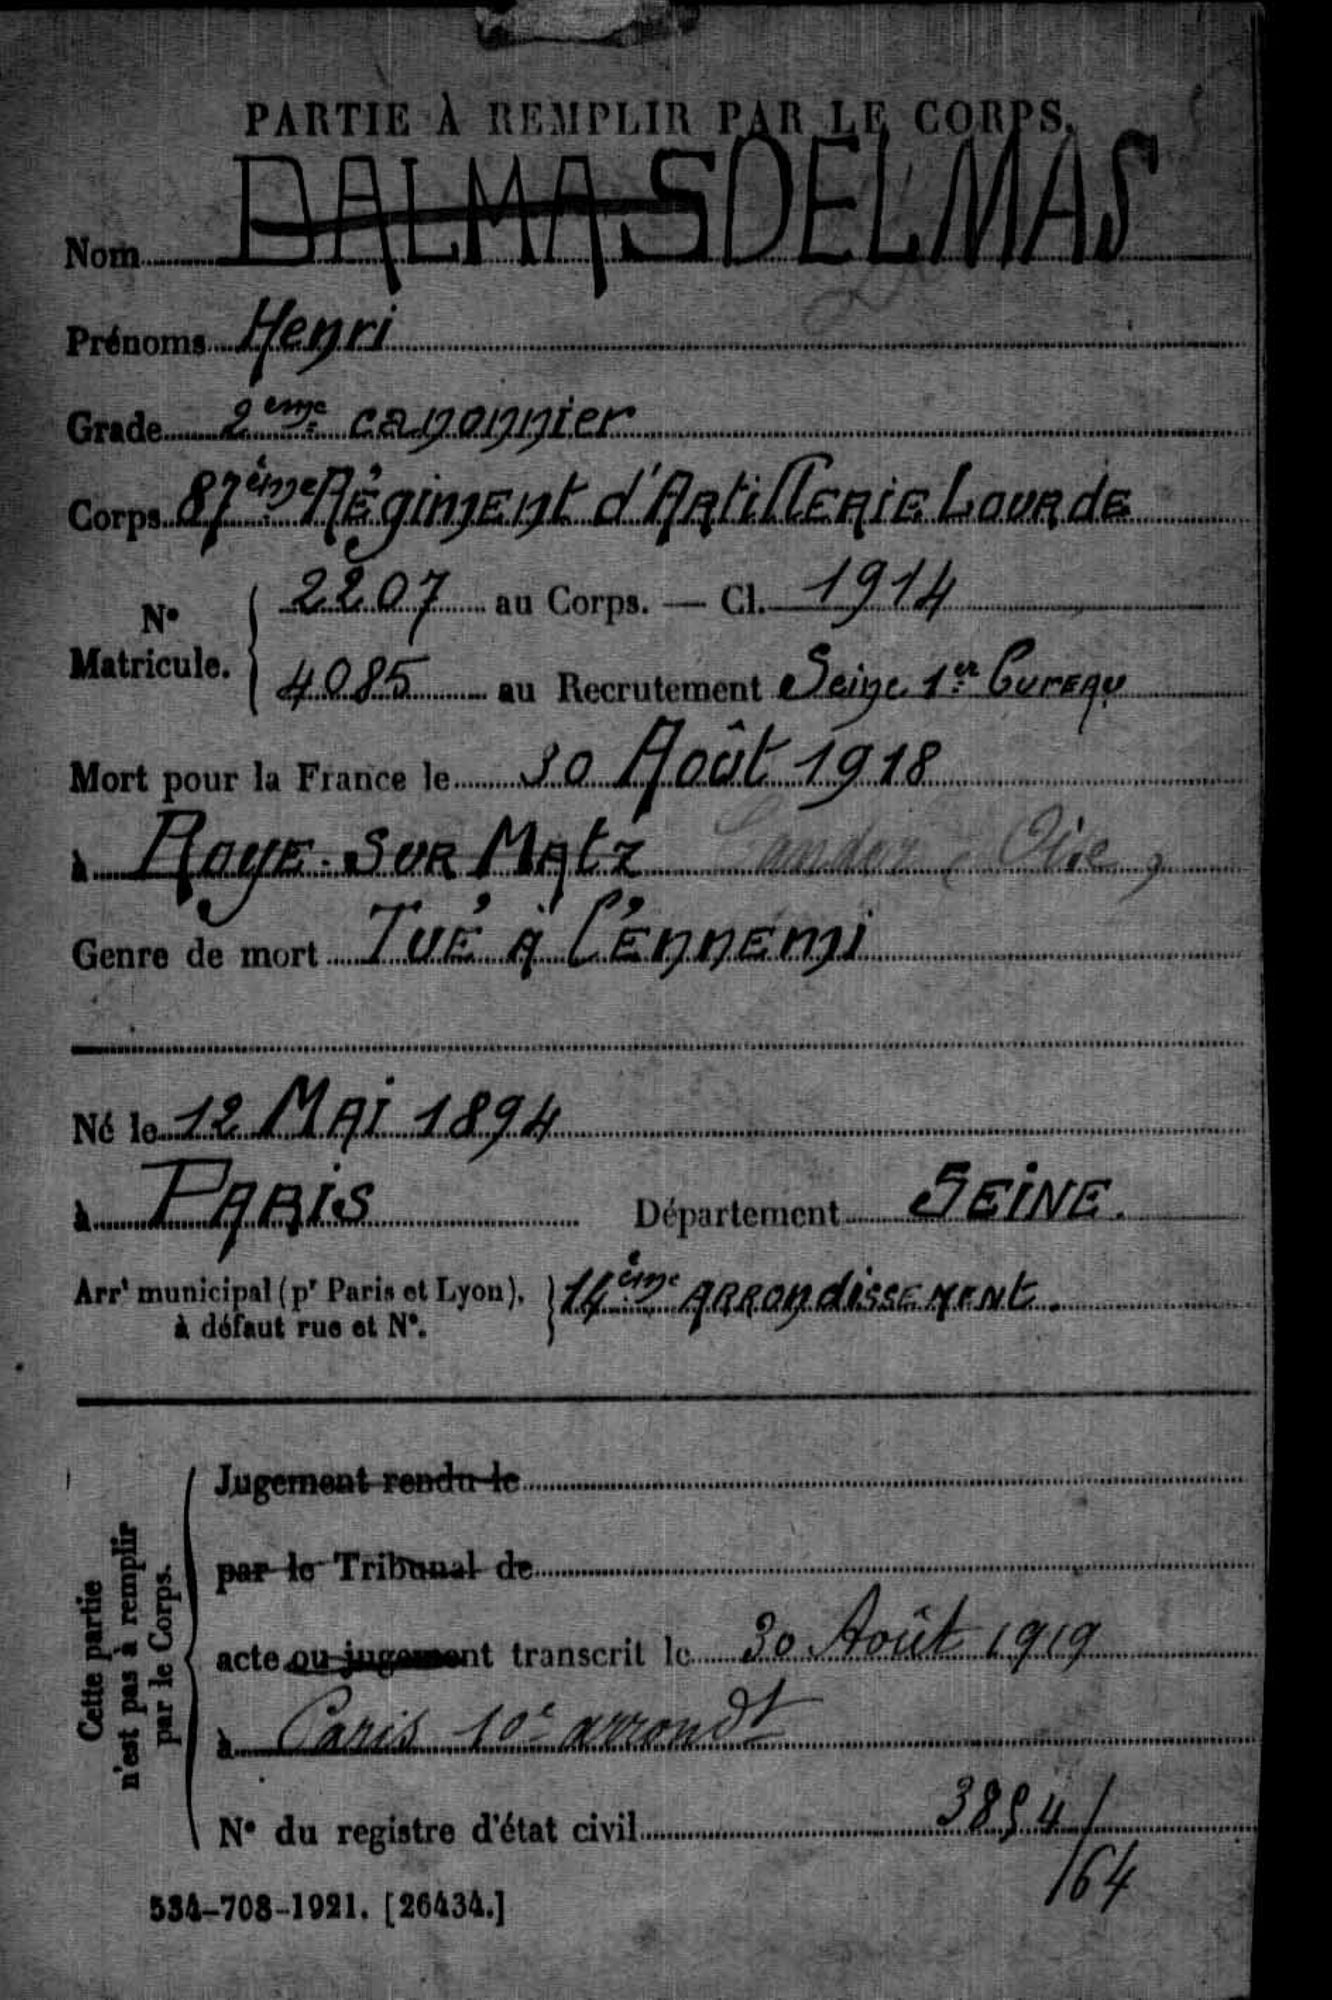 PARTIE À REMPLIR PAR LE CORPS.
Nom DALMAS DELMAS
Prénoms Henri
Grade 2ème canonnier
Corps 87ème Régiment d'Artillerie Lourde
N° Matricule. 2207 au Corps. — Cl. 1914
4085 au Recrutement Seine 1er Bureau
Mort pour la France le 30 Août 1918
à Roye-sur Matz Oise
Genre de mort Tué à l'énnémi
Né le 12 MAI 1894
à PARIS Département SEINE.
Arrt municipal (pr Paris et Lyon), à défaut rue et N°. 14ème ARRondissEMENt.
Cette partie n'est pas à remplir par le Corps.
Jugement rendu le
par le Tribunal de
acte ou jugement transcrit le 30 Août 1919
à Paris 10e arrondt
N° du registre d'état civil 3854/
/64
534-708-1921. [26434.]